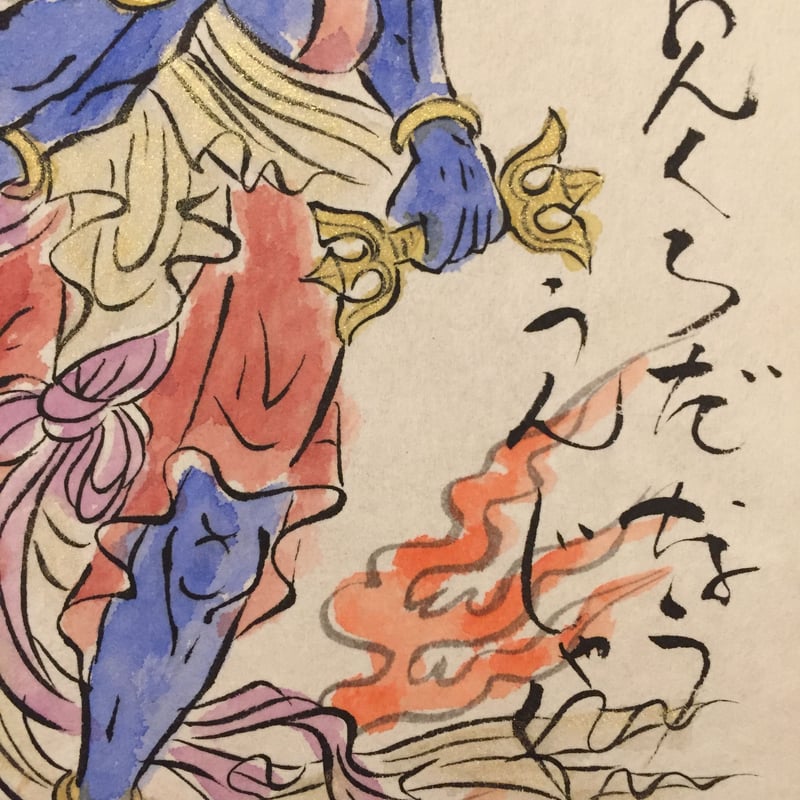 おんくろだなう
うんじゃく